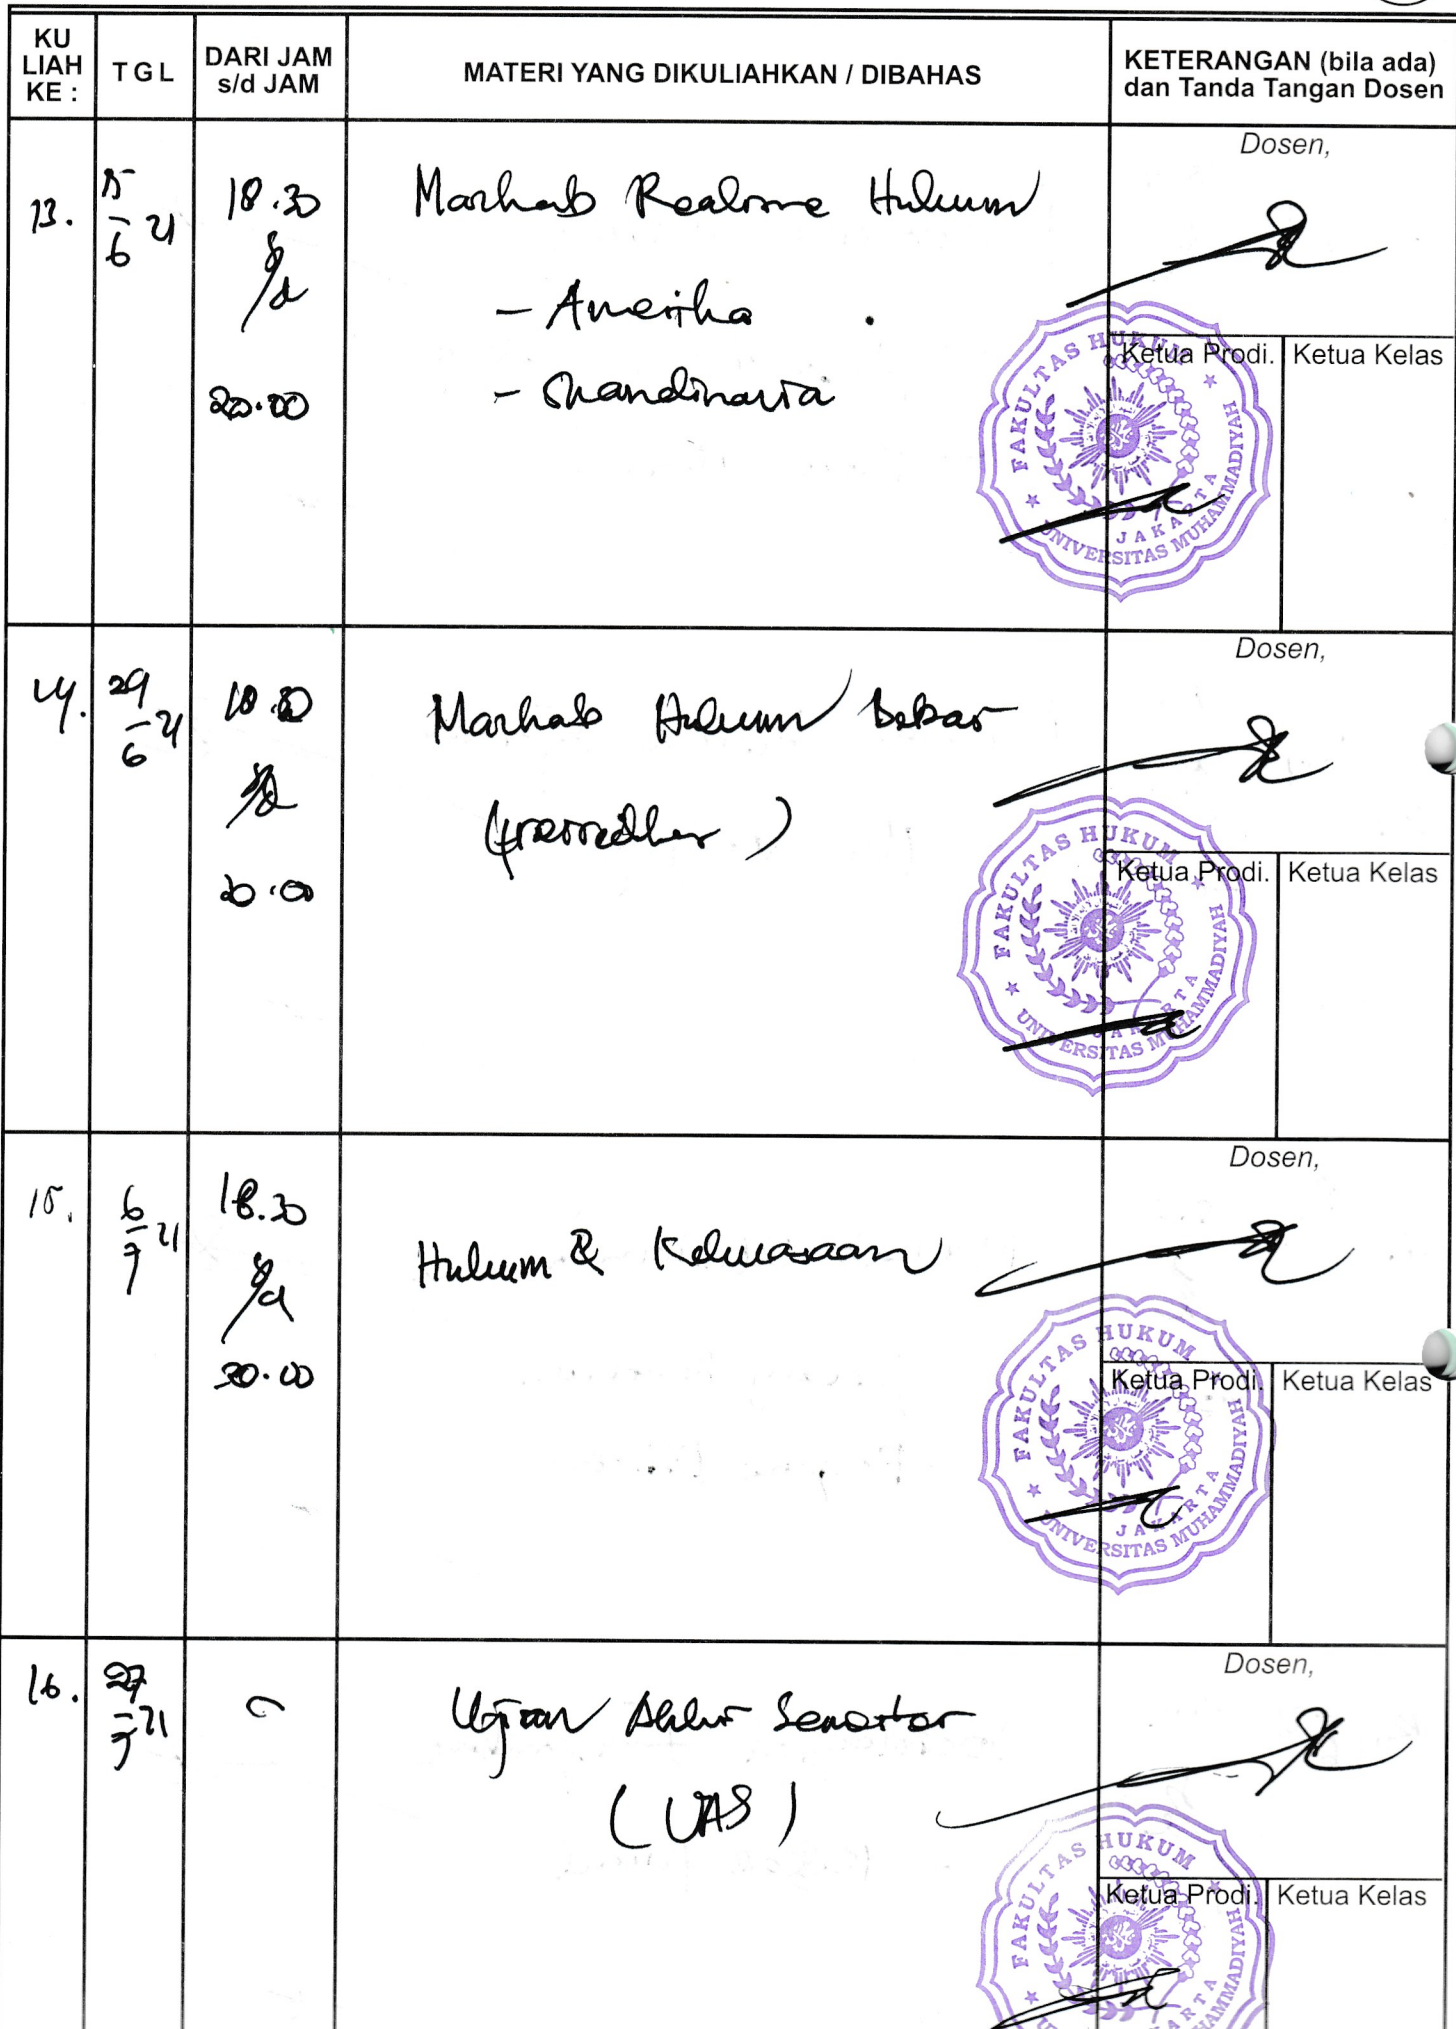 KU
LIAH
KE :
TGL
DARI JAM
s/d JAM
MATERI YANG DIKULIAHKAN / DIBAHAS
KETERANGAN (bila ada)
dan Tanda Tangan Dosen
13.
15/6 21
18.30
s/d
20.00
Mazhab Realisme Hukum
- Amerika
- Skandinavia
Dosen,
Ketua Prodi.
Ketua Kelas
FAKULTAS HUKUM
UNIVERSITAS MUHAMMADIYAH
JAKARTA
14.
29/6 21
18.30
s/d
20.00
Mazhab Hukum Bebas
Dosen,
Ketua Prodi.
Ketua Kelas
FAKULTAS HUKUM
UNIVERSITAS MUHAMMADIYAH
JAKARTA
15.
6/7 21
18.30
s/d
20.00
Hukum & Kekuasaan
Dosen,
Ketua Prodi.
Ketua Kelas
FAKULTAS HUKUM
UNIVERSITAS MUHAMMADIYAH
JAKARTA
16.
27/7 21
Ujian Akhir Semester
(UAS)
Dosen,
Ketua Prodi.
Ketua Kelas
FAKULTAS HUKUM